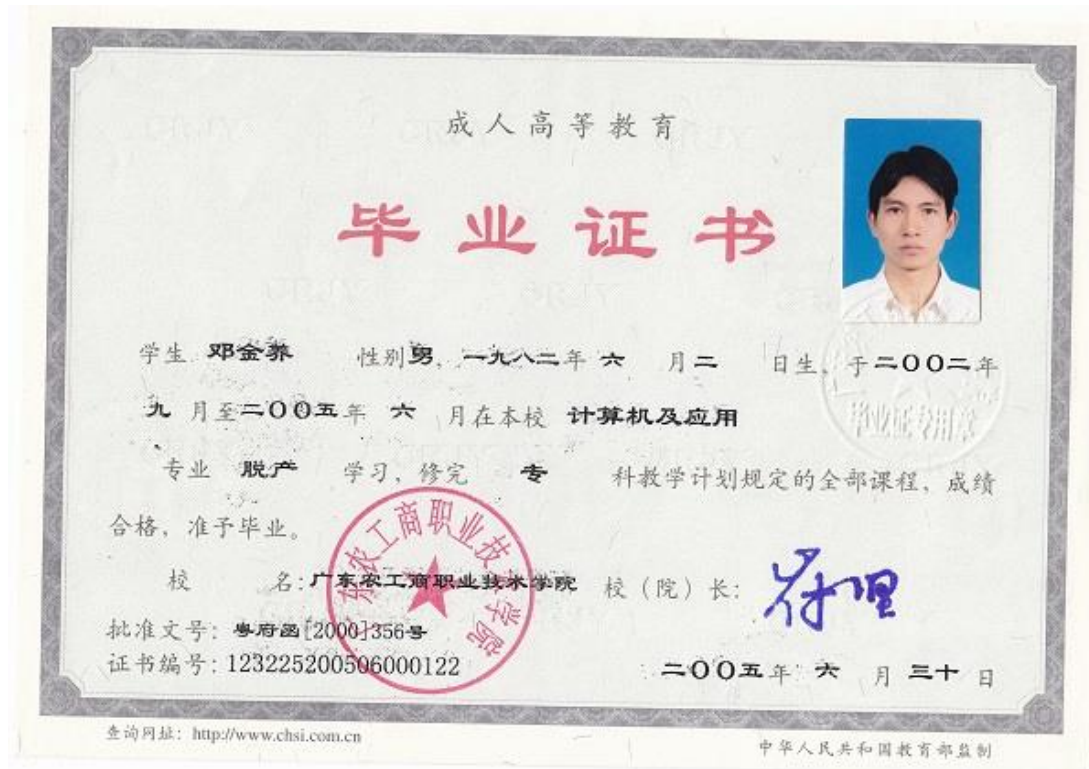 成人高等教育
毕业证书
学生 邓金养 性别男,一九八二年 六 月二 日生、于二〇〇二年
九 月至二〇〇五年 六 月在本校 计算机及应用
专业 脱产 学习,修完 专 科教学计划规定的全部课程,成绩
合格,准予毕业。
校 名:广东农工商职业技术学院 校(院)长:
批准文号:粤府函[2000]356号
证书编号:123225200506000122
二〇〇五年 六 月 三十 日
广东农工商职业技术学院
毕业证专用章
查询网址:http://www.chsi.com.cn
中华人民共和国教育部监制